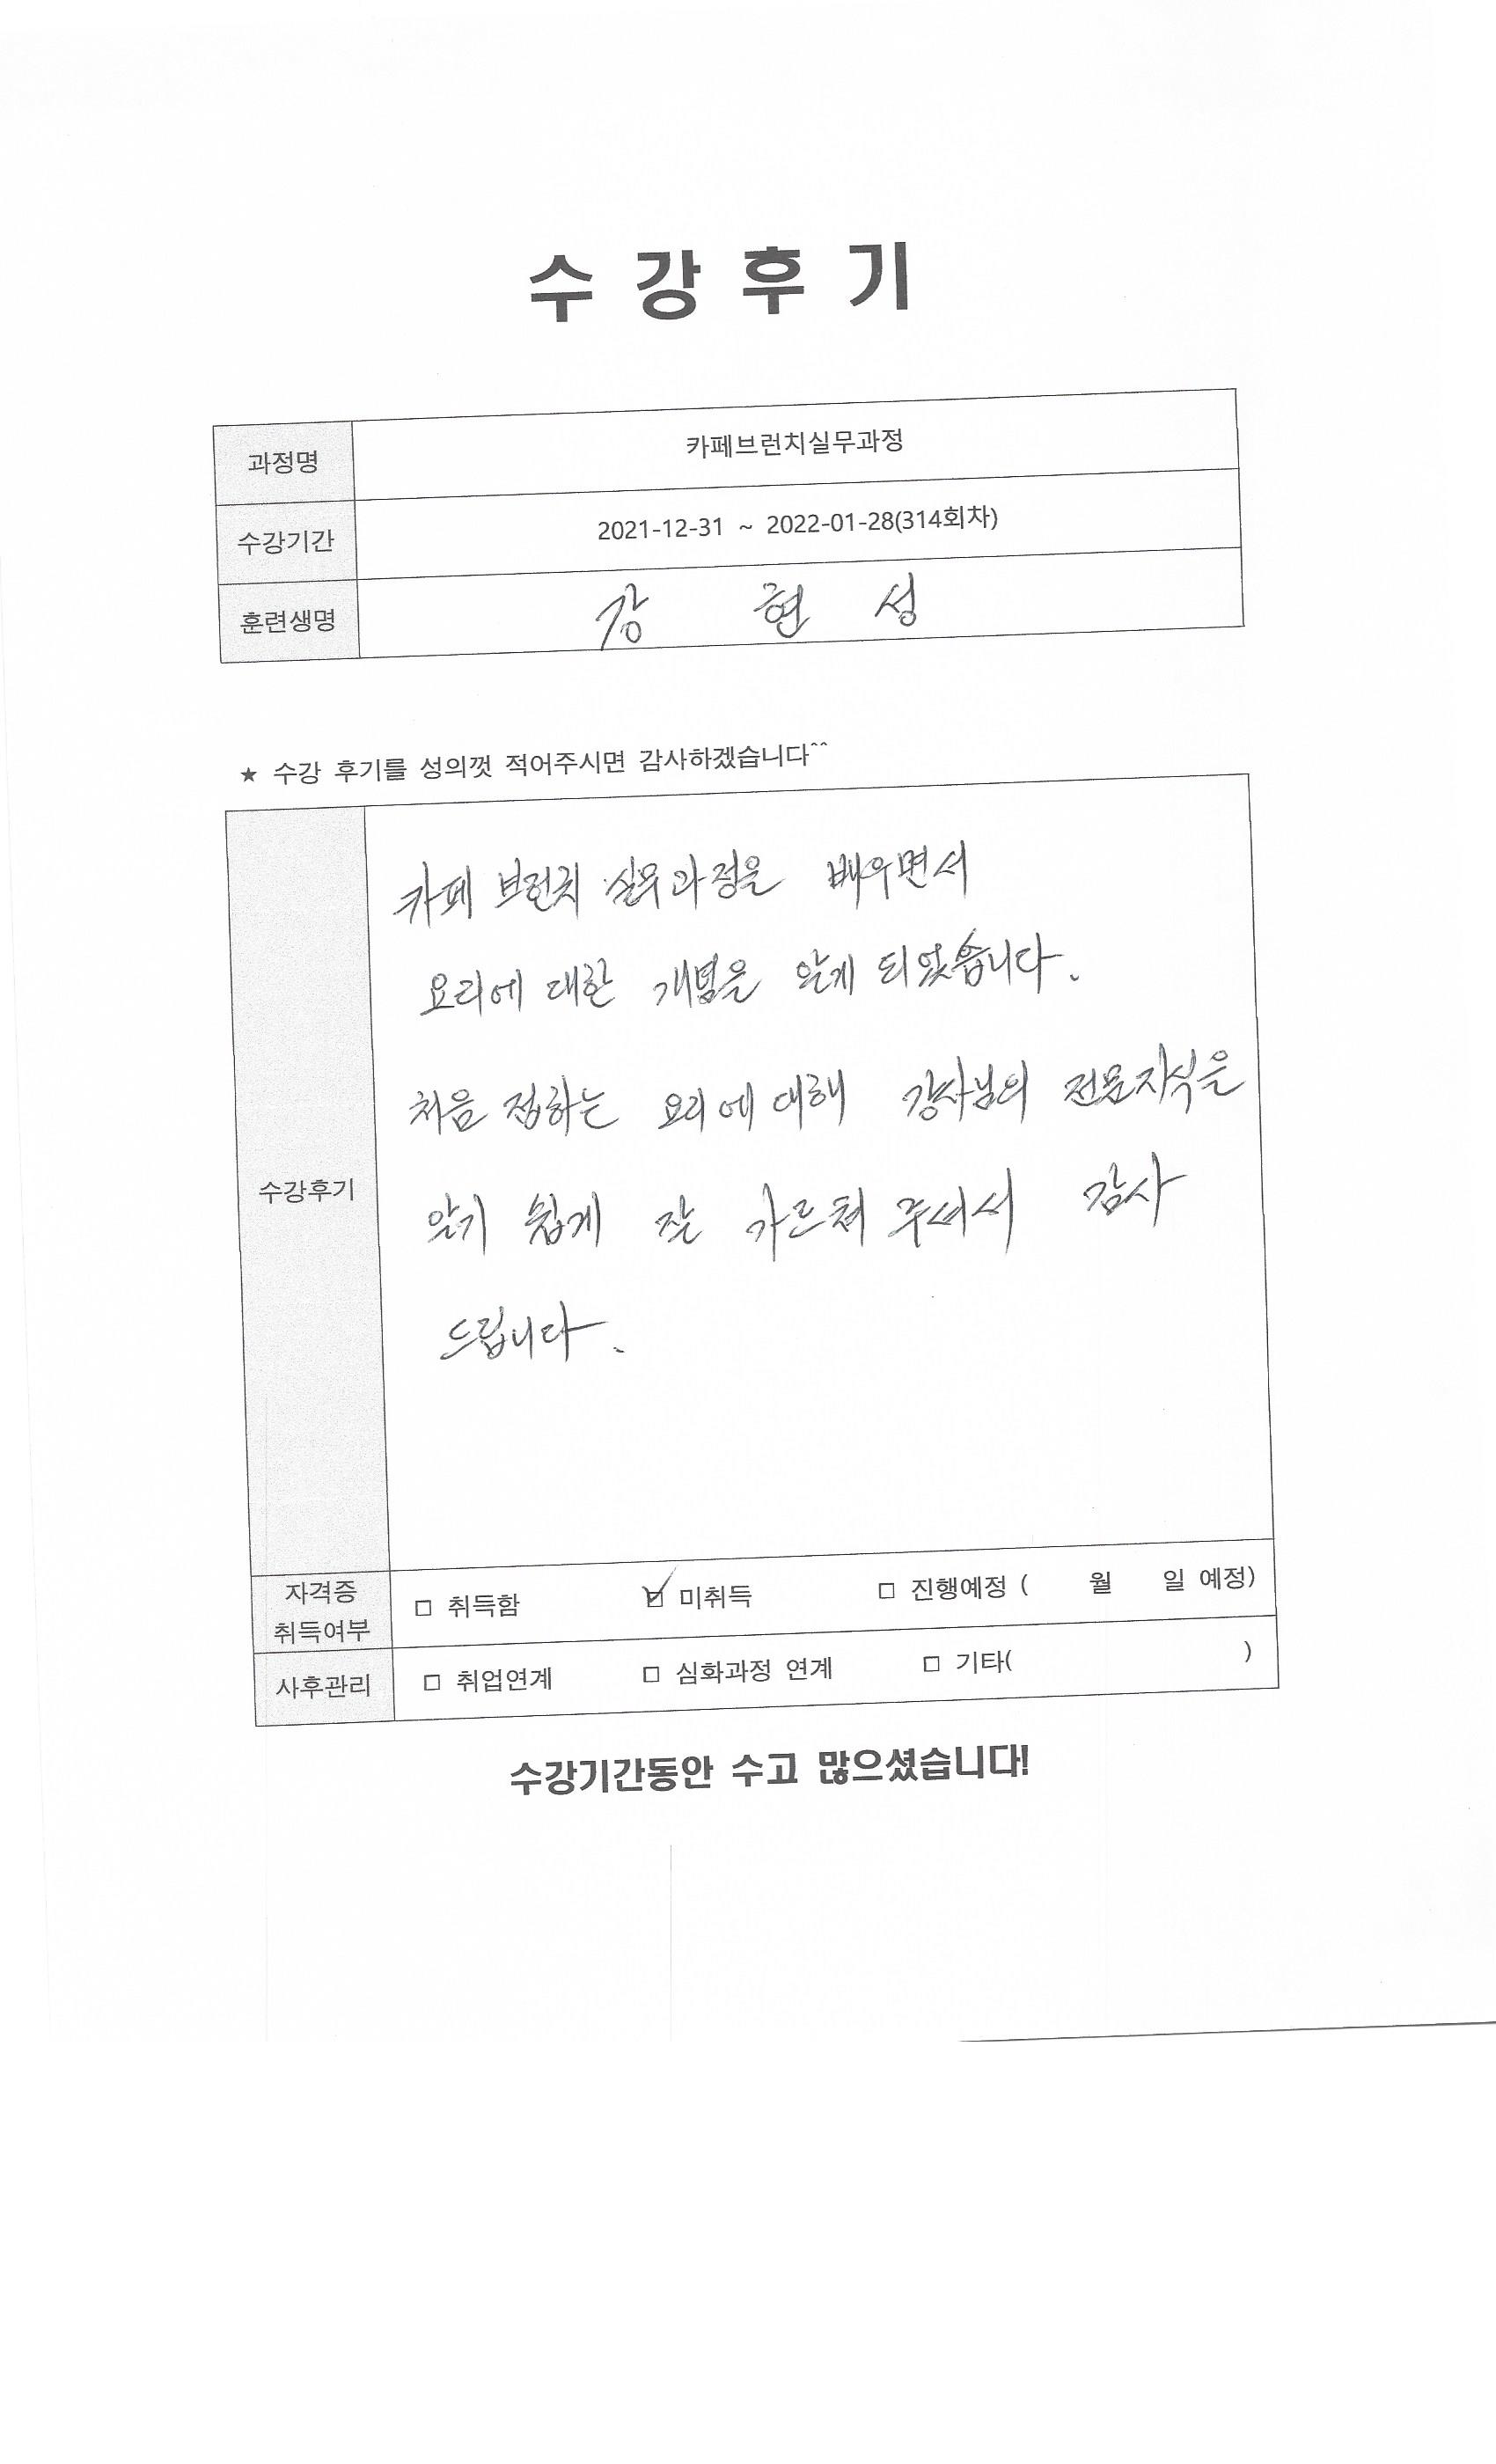 수 강 후 기
과정명 카페브런치실무과정
수강기간 2021-12-31 ~ 2022-01-28(314회차)
훈련생명 강 현 성
★ 수강 후기를 성의껏 적어주시면 감사하겠습니다^^
카페 브런치 실무과정을 배우면서
요리에 대한 개념을 알게 되었습니다.
처음 접하는 요리에 대해 강사님의 전문지식을
수강후기
알기 쉽게 잘 가르쳐 주셔서 감사
드립니다.
자격증 취득여부 □ 취득함 ☑ 미취득 □ 진행예정 ( 월 일 예정)
사후관리 □ 취업연계 □ 심화과정 연계 □ 기타( )
수강기간동안 수고 많으셨습니다!